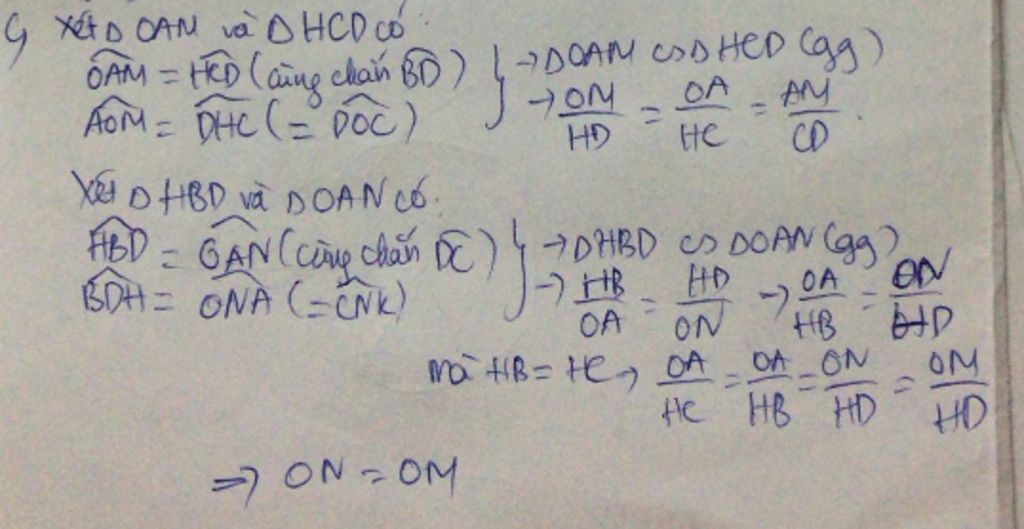 c, Xét Δ OAM và Δ HCD có
OAM = HCD (cùng chắn BD) } → Δ OAM ∽ Δ HCD (gg)
AOM = DHC (= DOC) → OM/HD = OA/HC = AM/CD.
Xét Δ HBD và Δ OAN có.
HBD = OAN (cùng chắn DC) } → Δ HBD ∽ Δ OAN (gg)
BDH = ONA (= CNK) → HB/OA = HD/ON → OA/HB = ON/HD
mà HB = HC → OA/HC = OA/HB = ON/HD = OM/HD
⇒ ON = OM